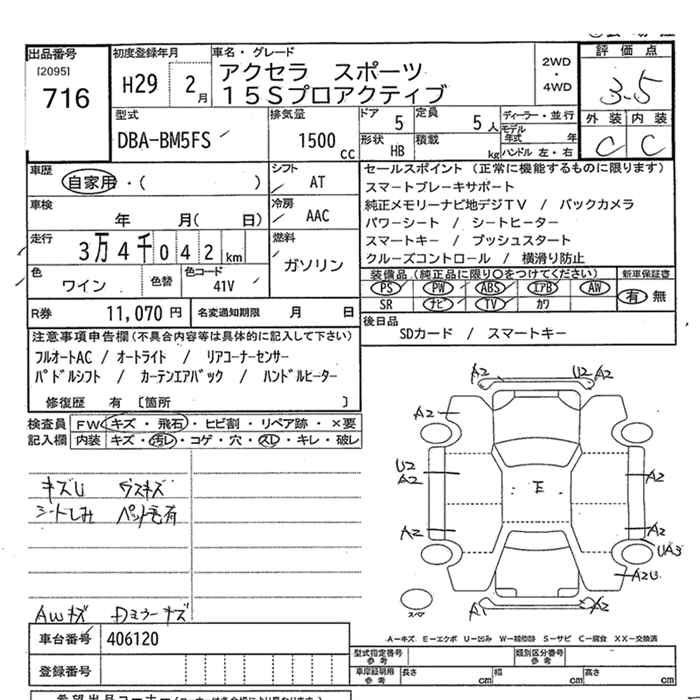 出品番号 初度登録年月 車名・グレード 評価点
[2095] 716 H29 2月 アクセラ スポーツ 2WD・4WD 3.5
15Sプロアクティブ
型式 排気量 ドア 5 定員 5人 ディーラー・並行 外装 内装
DBA-BM5FS 1500cc 形状 HB 積載 kg モデル年式 年 C C
ハンドル 左・右
車歴 自家用・( ) シフト AT セールスポイント (正常に機能するものに限ります)
スマートブレーキサポート
車検 年 月( 日) 冷房 AAC 純正メモリーナビ地デジTV / バックカメラ
パワーシート / シートヒーター
走行 3万4千042km 燃料 ガソリン スマートキー / プッシュスタート
クルーズコントロール / 横滑り防止
色 ワイン 色替 色コード 41V 装備品(純正品に限り○をつけてください) 新車保証書
PS PW ABS エアB AW 有 無
SR ナビ TV カワ
R券 11,070円 名変通知期限 月 日 後日品
SDカード / スマートキー
注意事項申告欄(不具合内容等は具体的に記入して下さい)
フルオートAC / オートライト / リアコーナーセンサー
パドルシフト / カーテンエアバック / ハンドルヒーター
修復歴 有 [箇所 ]
検査員 FW キズ・飛石・ヒビ割・リペア跡・×要
記入欄 内装 キズ・汚レ・コゲ・穴・スレ・キレ・破レ
A2 U2 A2
A2
U2
A2 E A2
キズU ウスキズ
シートしみ ペット毛有
A2 A2
UA3
A2U
スペア A1 A2
AWキズ Dミラーキズ
A－キズ E－エクボ U－凹み W－補修跡 S－サビ C－腐食 XX－交換済
車台番号 406120 型式指定番号 参考 類別区分番号 参考
登録番号 車庫証明用 参考 長さ cm 幅 cm 高さ cm